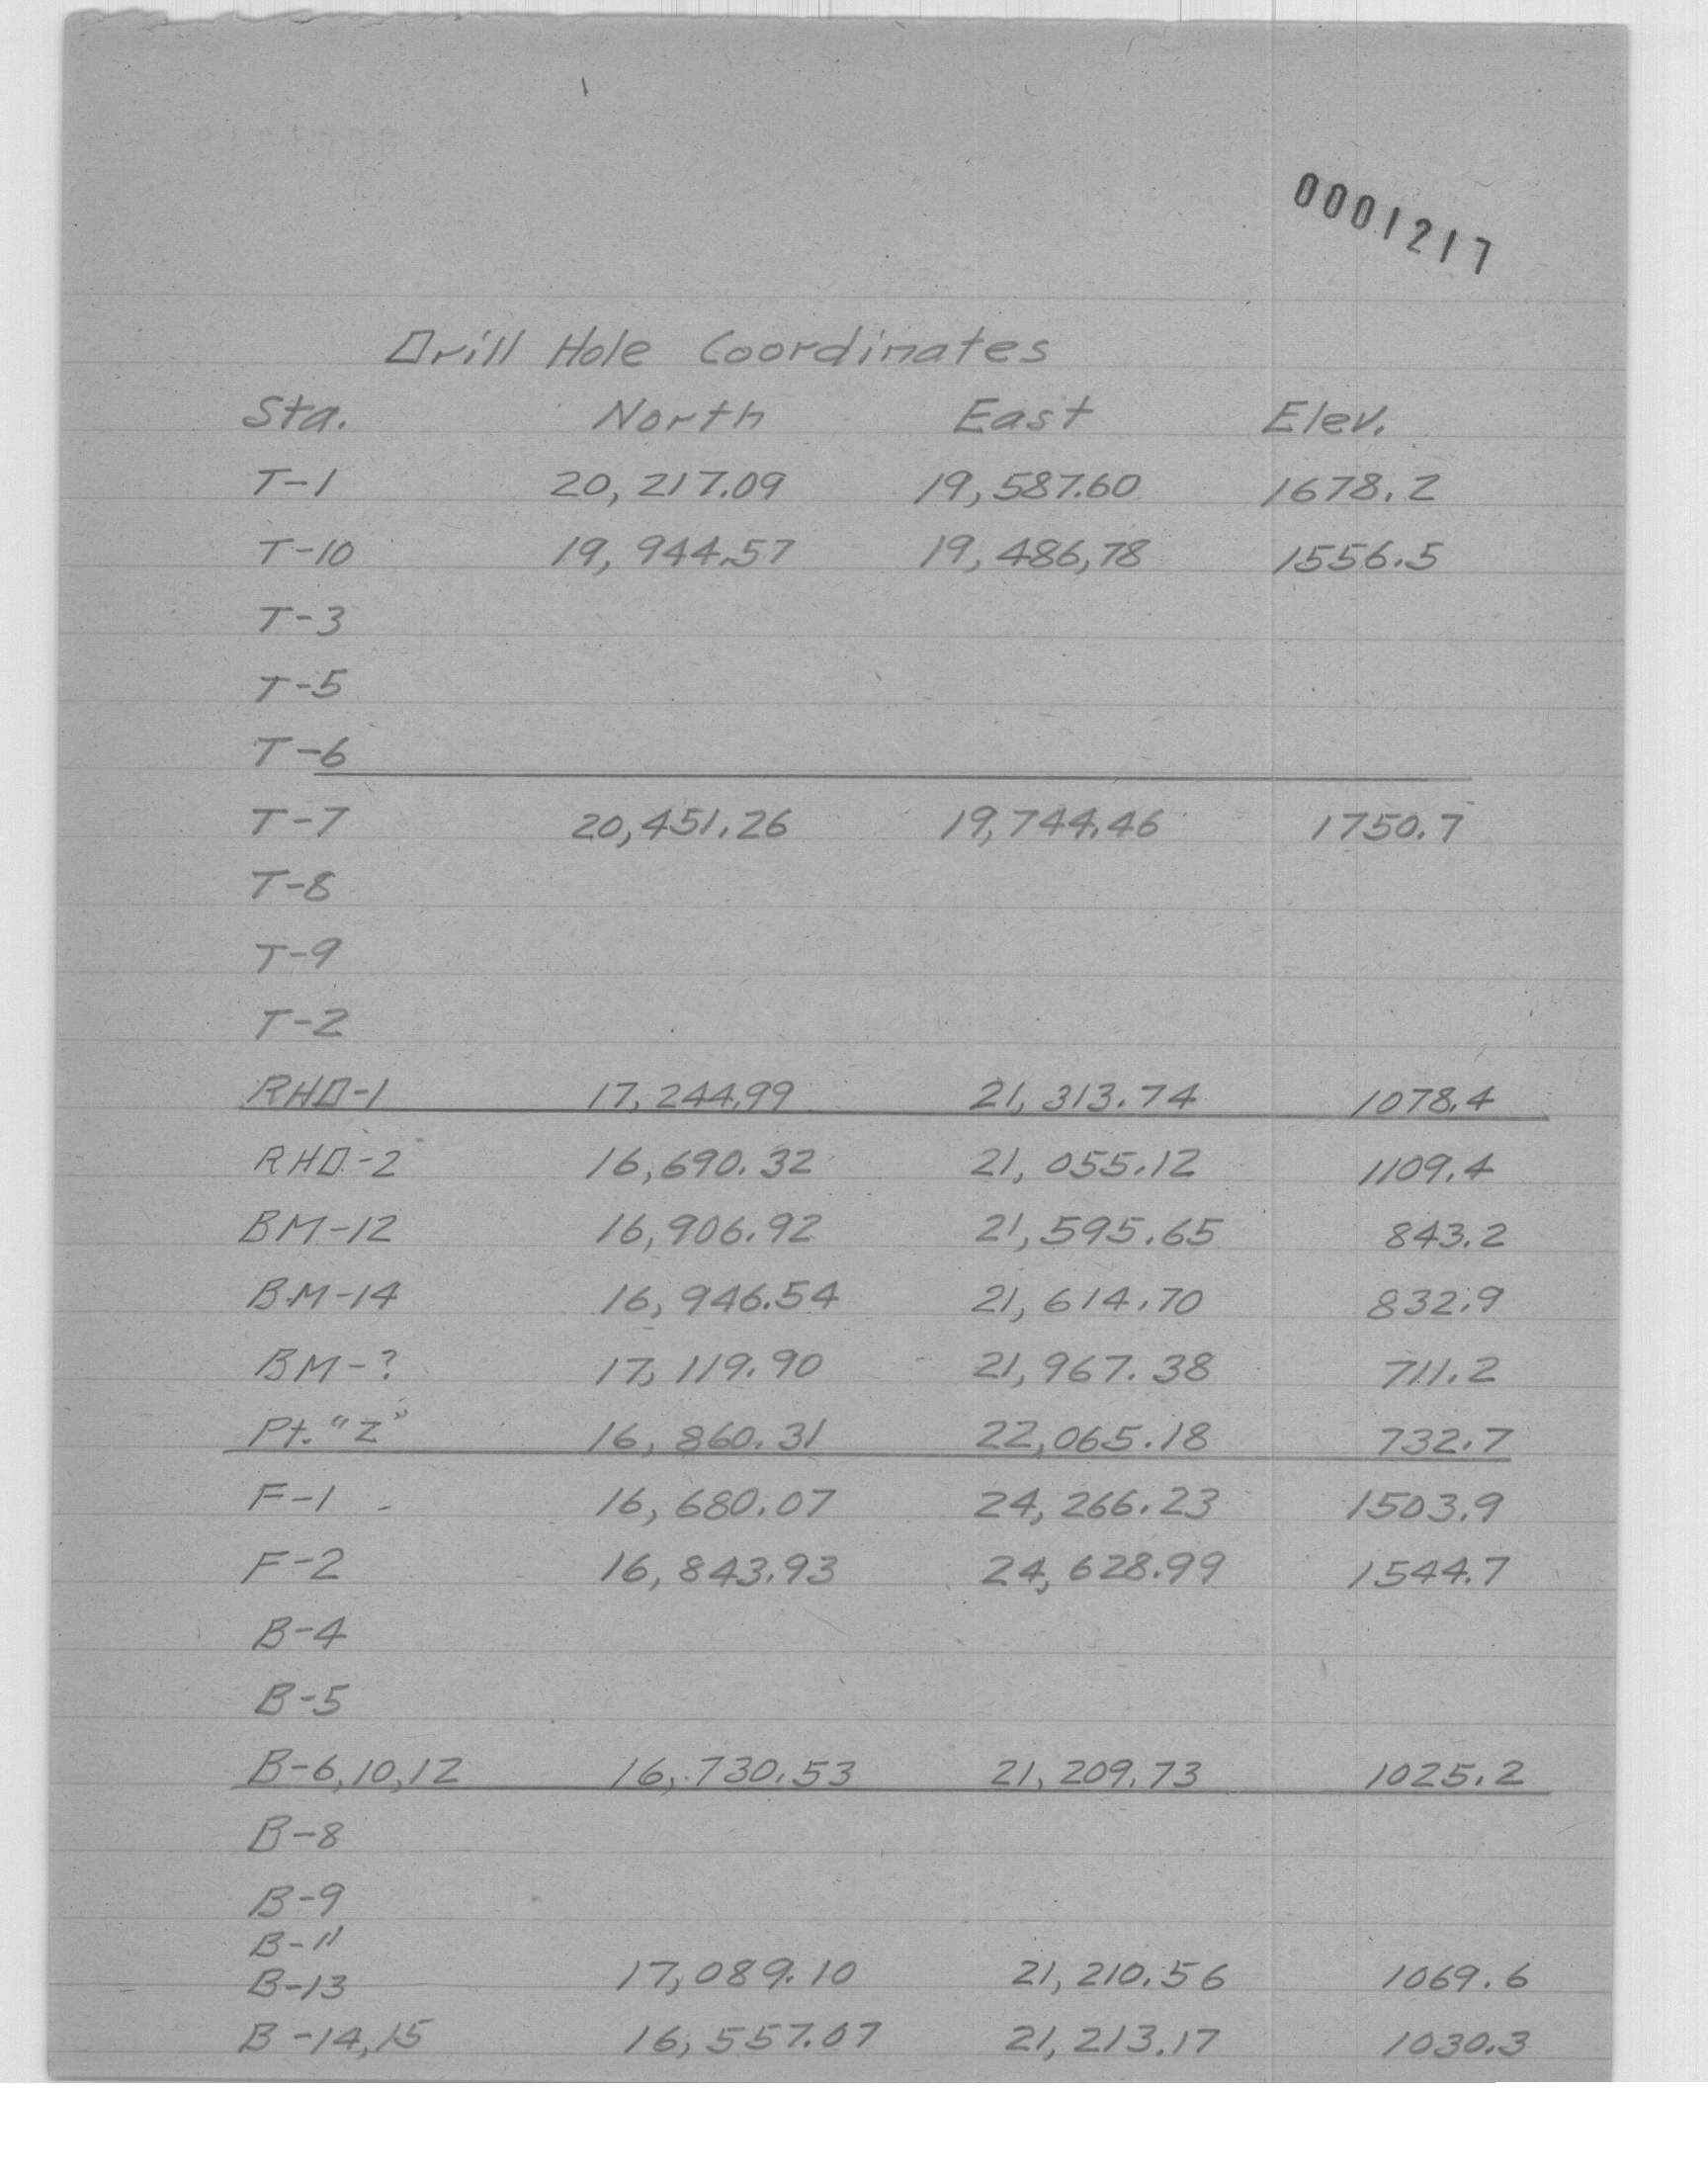 0001217
Drill Hole Coordinates
Sta. North East Elev.
T-1 20,217.09 19,587.60 1678.2
T-10 19,944.57 19,486,78 1556.5
T-3
T-5
T-6
T-7 20,451.26 19,744.46 1750.7
T-8
T-9
T-2
RHD-1 17,244.99 21,313.74 1078.4
RHD-2 16,690.32 21,055.12 1109.4
BM-12 16,906.92 21,595.65 843.2
BM-14 16,946.54 21,614.70 832.9
BM-? 17,119.90 21,967.38 711.2
Pt. "Z" 16,860.31 22,065.18 732.7
F-1 16,680.07 24,266.23 1503.9
F-2 16,843.93 24,628.99 1544.7
B-4
B-5
B-6,10,12 16,730.53 21,209.73 1025.2
B-8
B-9
B-11
B-13 17,089.10 21,210.56 1069.6
B-14,15 16,557.07 21,213.17 1030.3